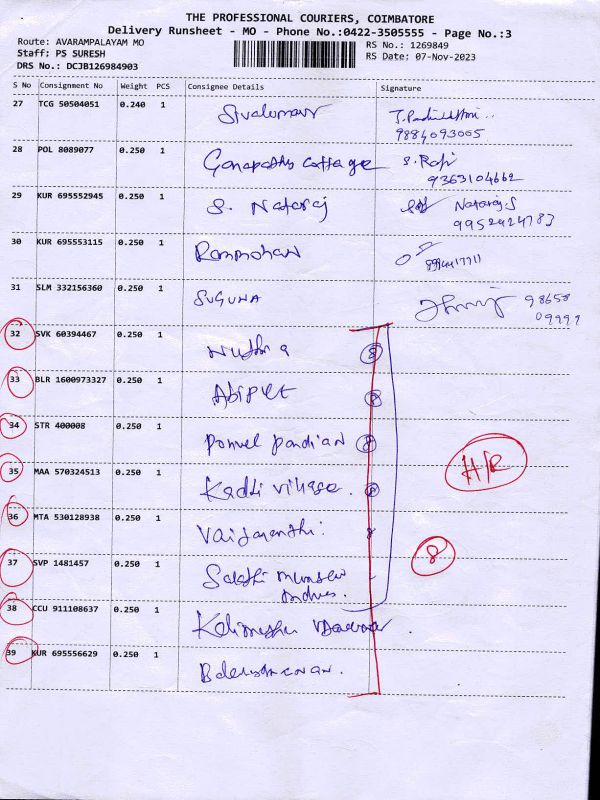 THE PROFESSIONAL COURIERS, COIMBATORE
Delivery Runsheet - MO - Phone No.:0422-3505555 - Page No.:3
Route: AVARAMPALAYAM MO
Staff: PS SURESH
DRS No.: DCJB126984903
RS No.: 1269849
RS Date: 07-Nov-2023
S No Consignment No Weight PCS Consignee Details Signature
27 TCG 50504051 0.240 1
9884093005
28 POL 8089077 0.250 1 Ganapathy Cottage S. Raji
9363104662
29 KUR 695552945 0.250 1 S. Nataraj Nataraj S
9952924783
30 KUR 695553115 0.250 1 Rammohan
31 SLM 332156360 0.250 1 SUGUNA 98658
09999
32 SVK 60394467 0.250 1 8
33 BLR 1600973327 0.250 1 8
34 STR 400008 0.250 1 Ponvel pandian 8
35 MAA 570324513 0.250 1 8
H/R
36 MTA 530128938 0.250 1 Vaijayanthi 8
8
37 SVP 1481457 0.250 1 Sakthi
38 CCU 911108637 0.250 1
39 KUR 695556629 0.250 1